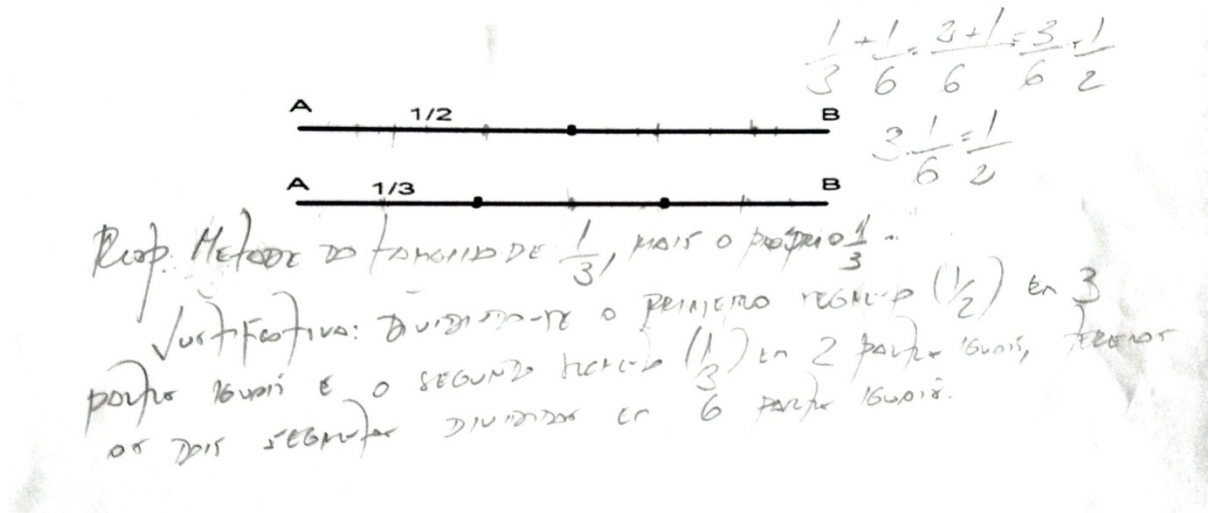 1/3 + 1/6 = 2+1/6 = 3/6 = 1/2
A 1/2 B
3 · 1/6 = 1/2
A 1/3 B
Resp. Metade do tamanho de 1/3, mais o próprio 1/3
Justificativa: Dividindo-se o primeiro segmento (1/2) em 3
partes iguais e o segundo segmento (1/3) em 2 partes iguais, teremos
os dois segmentos divididos em 6 partes iguais.